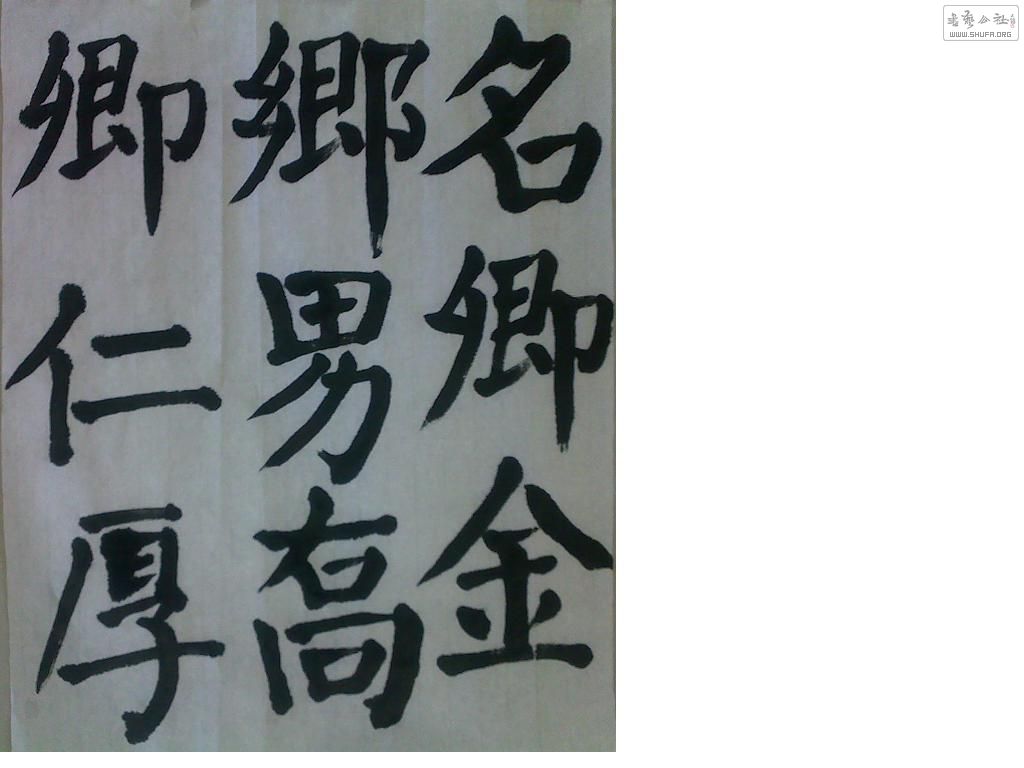 名卿金
鄉男喬
卿仁厚
書藝公社
WWW.SHUFA.ORG